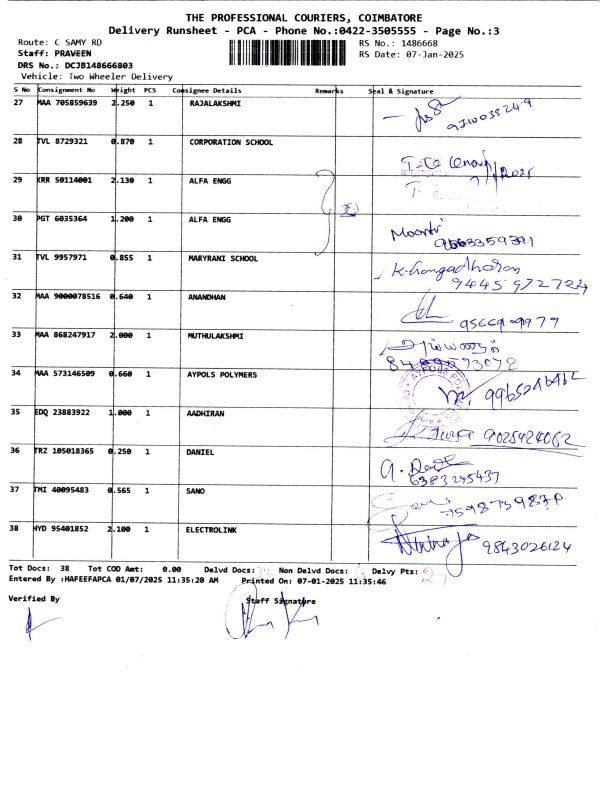 THE PROFESSIONAL COURIERS, COIMBATORE
Delivery Runsheet - PCA - Phone No.:0422-3505555 - Page No.:3
Route: C SAMY RD RS No.: 1486668
Staff: PRAVEEN RS Date: 07-Jan-2025
DRS No.: DCJB148666803
Vehicle: Two Wheeler Delivery
S No Consignment No Weight PCS Consignee Details Remarks Seal & Signature
27 MAA 705859639 2.250 1 RAJALAKSHMI
28 TVL 8729321 0.870 1 CORPORATION SCHOOL
29 KRR 50114001 2.130 1 ALFA ENGG
30 PGT 6035364 1.200 1 ALFA ENGG
9663359391
31 TVL 9957971 0.855 1 MARYRANI SCHOOL K. Gangadharan
9445972724
32 MAA 9000078516 0.640 1 ANANDHAN
33 MAA 868247917 2.000 1 MUTHULAKSHMI
34 MAA 573146509 0.660 1 AYPOLS POLYMERS
35 EDQ 23883922 1.000 1 AADHIRAN 9025424062
36 TRZ 105018365 0.250 1 DANIEL
6383245437
37 TMI 40095483 0.565 1 SANO
38 HYD 95401852 2.100 1 ELECTROLINK 9843026124
Tot Docs: 38 Tot COD Amt: 0.00 Delvd Docs: Non Delvd Docs: Delvy Pts:
Entered By :HAFEEFAPCA 01/07/2025 11:35:20 AM Printed On: 07-01-2025 11:35:46
Verified By Staff Signature